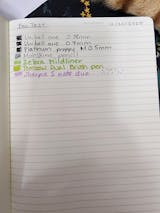 Pen Test
Uniball one 0.38mm
Uniball one 0.5mm
Platinum preppy M 0.5mm
pencil
Zebra Mildliner
Tombow Dual Brush pen
Sharpie S note duo